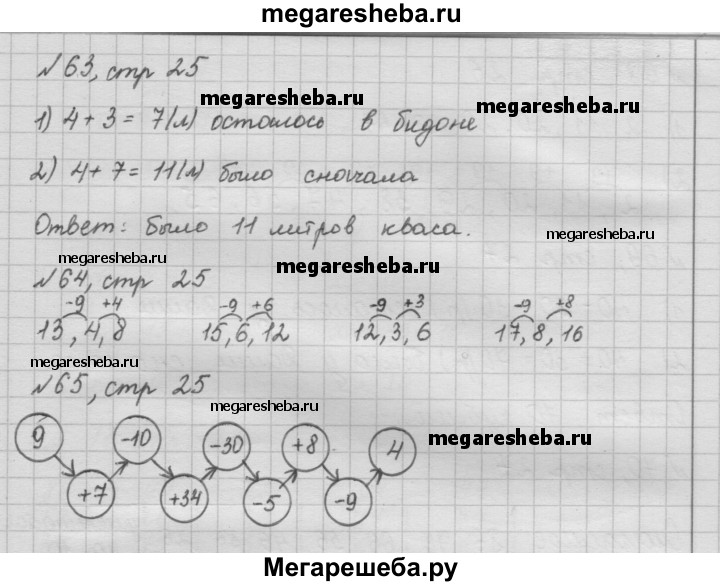 megaresheba.ru
№63, стр 25
megaresheba.ru
megaresheba.ru
1) 4+3 = 7(л) осталось в бидоне
2) 4+7 = 11(л) было сначала
Ответ: было 11 литров кваса.
megaresheba.ru
megaresheba.ru
megaresheba.ru
№64, стр 25
-9 +4 -9 +6 -9 +3 -9 +8
13, 4, 8 15, 6, 12 12, 3, 6 17, 8, 16
megaresheba.ru
№65, стр 25
megaresheba.ru
9 -10 -30 +8 4
megaresheba.ru
+7 +34 -5 -9
Мегарешеба.ру